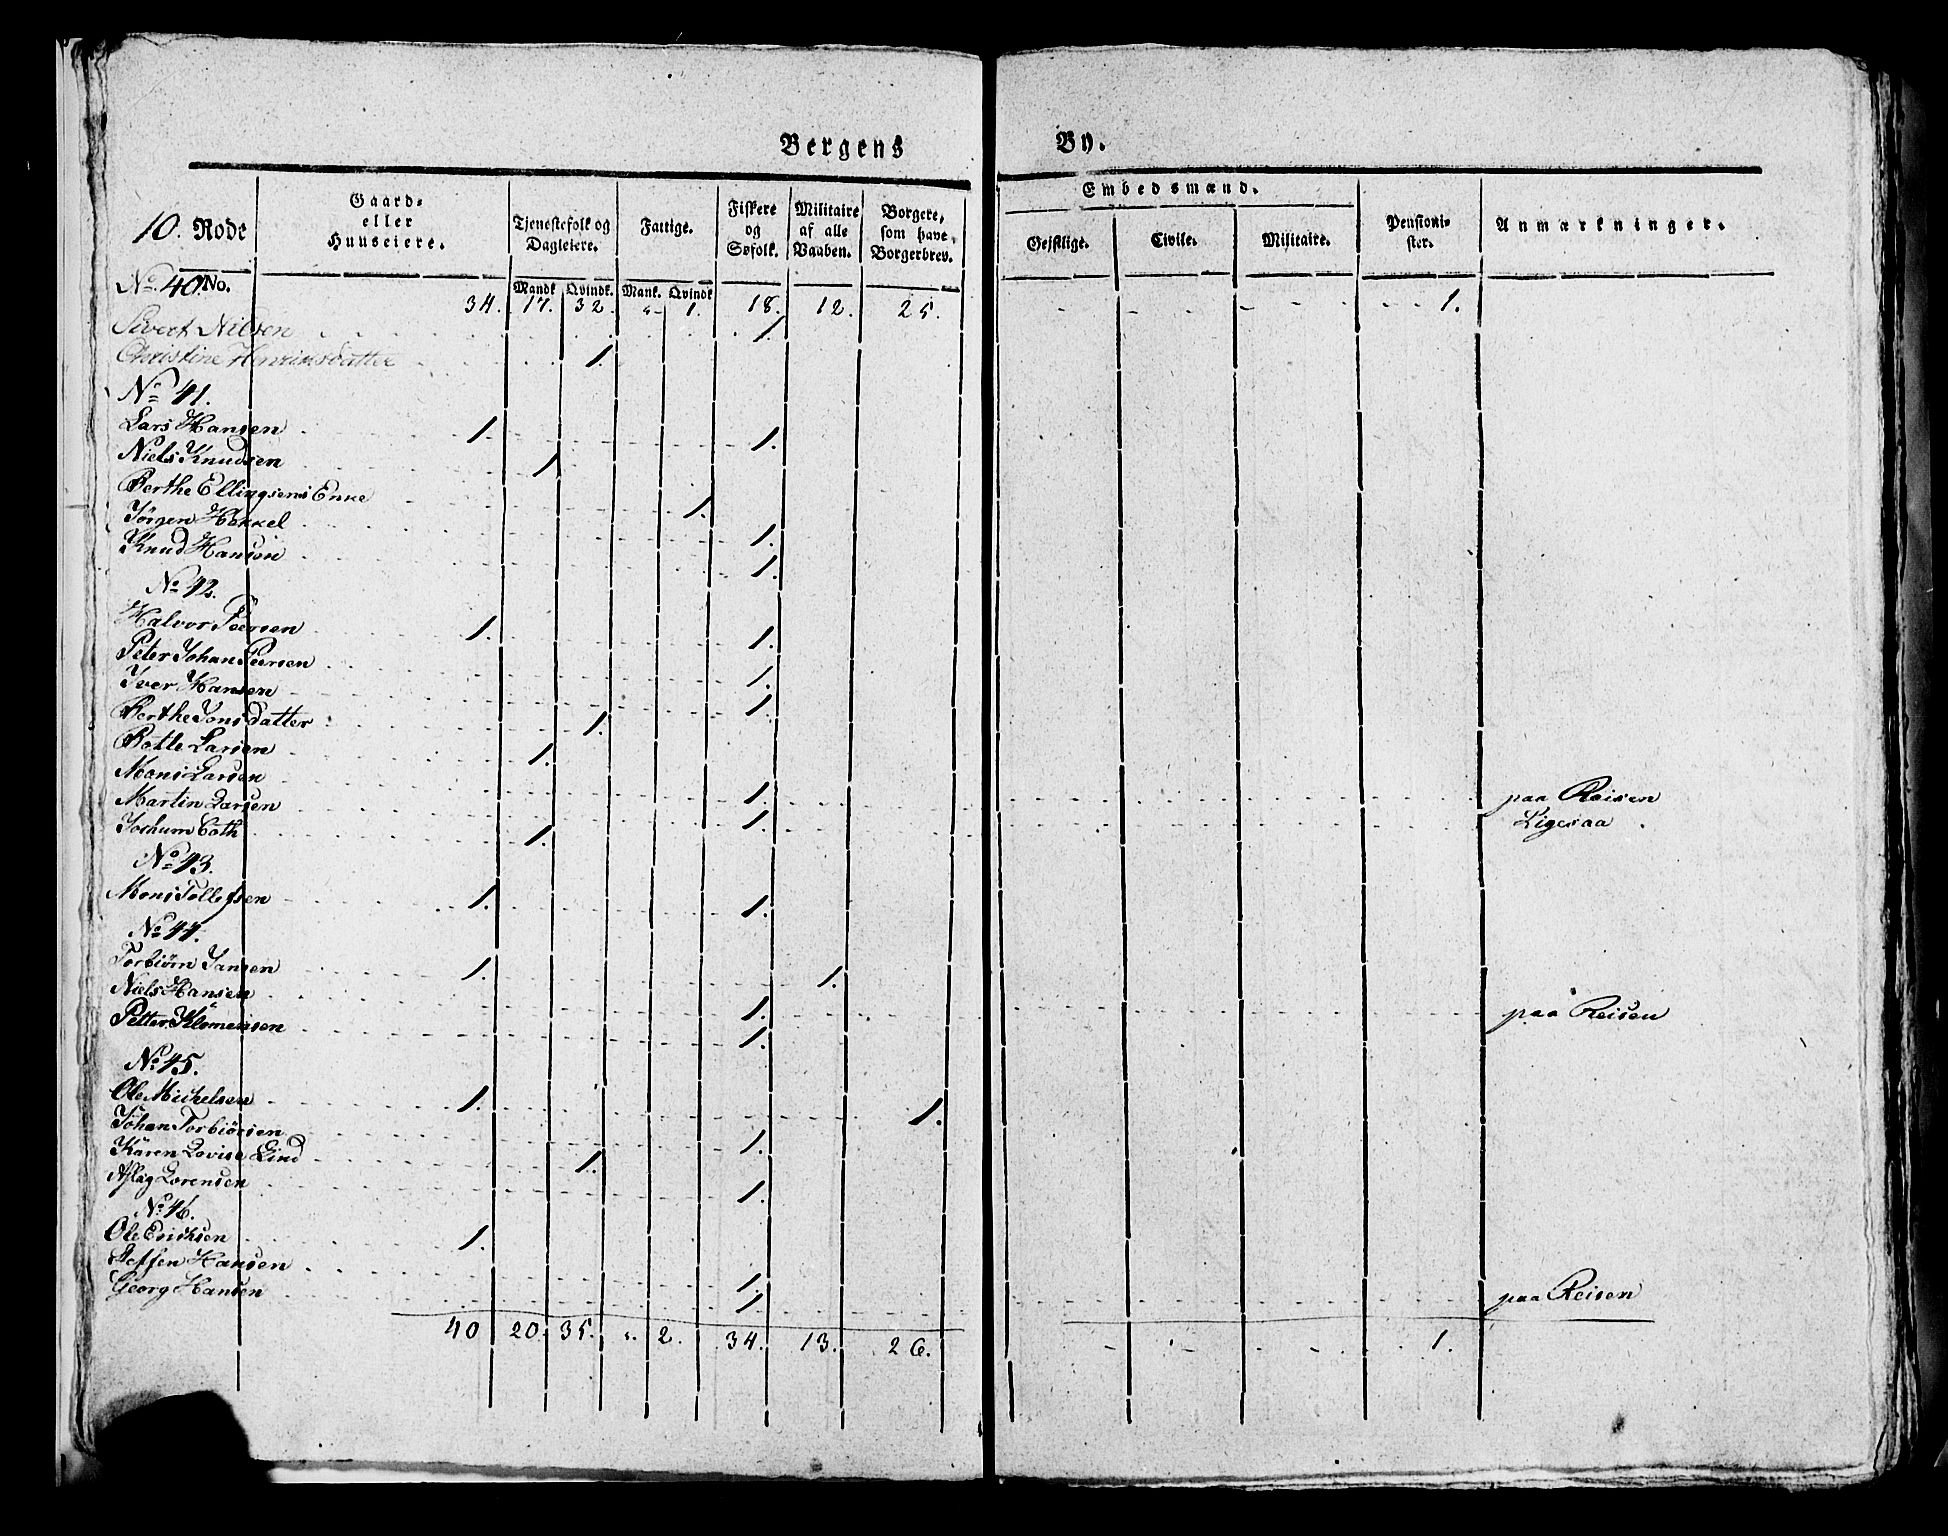 Bergens By.
10. Rode
Gaard= eller Huuseiere.
Tjenestefolk og Dagleiere.
Fattige.
Fiskere og Søfolk.
Militaire af alle Vaaben.
Borgere, som have Borgerbrev.
Embedsmænd.
Geistlige.
Civile.
Militaire.
Pensioni= ster.
Anmærkninger.
No. 40. No.
Mandk. Qvindk. Mank. Qvindk
34. 17. 32. „ 1. 18. 12. 25. - - - 1.
Sivert Nilsen 1.
Christine Henriksdatter 1.
No 41.
Lars Hansen 1. 1.
Niels Knudsen 1
Berthe Ellingsens Enke 1.
Jørgen Hekkel 1.
Knud Hansen 1.
No 42.
Halvor Peersen 1. 1.
Peter Johan Peersen 1.
Iver Hansen 1.
Berthe Jonsdatter 1.
Botle Larsen 1.
Mons Larsen 1. paa Reisen
Martin Larsen 1. Ligesaa
Jochum Coth 1.
No 43.
Mons Tollefsen 1. 1.
No 44.
Torbiørn Jansen 1. 1.
Niels Hansen 1. paa Reisen
Petter Klemensen 1.
No 45.
Ole Michelsen 1. 1.
Johan Torbiörsen 1.
Karen Lovise Lind 1.
Aslag Lorensen 1.
No 46.
Ole Ericksen 1.
Steffen Hansen 1.
Georg Hansen 1. paa Reisen
40 20. 35. „ 2. 34. 13. 26. - - - 1.